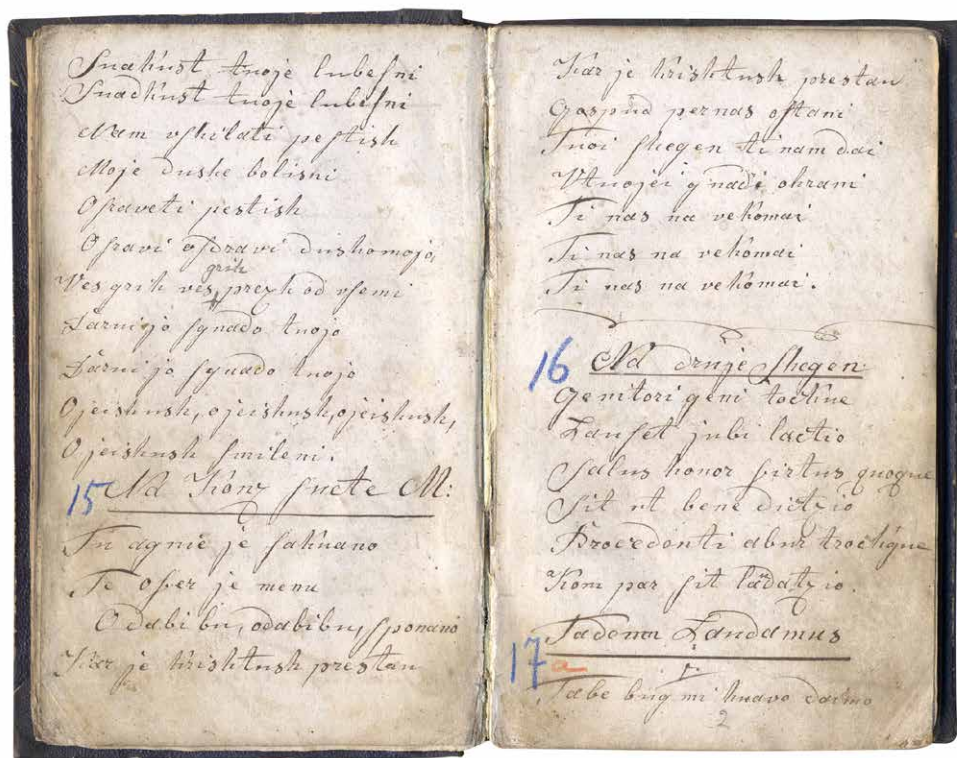 Snakust tnoje lubesni
Snadkust tnoje lubesni
Nam vshilati pestish
Moje dushe bolisni
Osraveti pestish
Osravi osdravi dushomojo,
grih
Ves grih ves, prezh od vsemi
Darni jo sgnado tnojo
Darni jo sgnado tnojo
O jeishush, o jeishush, o jeishush,
O jeishush smileni.
15 Na Konz svete M:
Tu agnie je sakuano
Te ofer je menu
O dabi bu, odabibu, sponano
Kar je krishtush prestau
Kar je krishtush prestau
Gospud per nas ostani
Tuoi shegen ti nam dai
Vtuojei gnadi ohrani
Ti nas na vekomai
Ti nas na vekomai
Ti nas na vekomai.
16 Na druje shegen:
Genitori geni tockue
Lauset jubi lactio
Salus honor firtus quoque
Sit ut bene dictzio
Procedenti abur trockque
Kom par sit laudatzio.
17 a Tadeum Laudamus
1.
Tabe bug mi huavo daimo
2